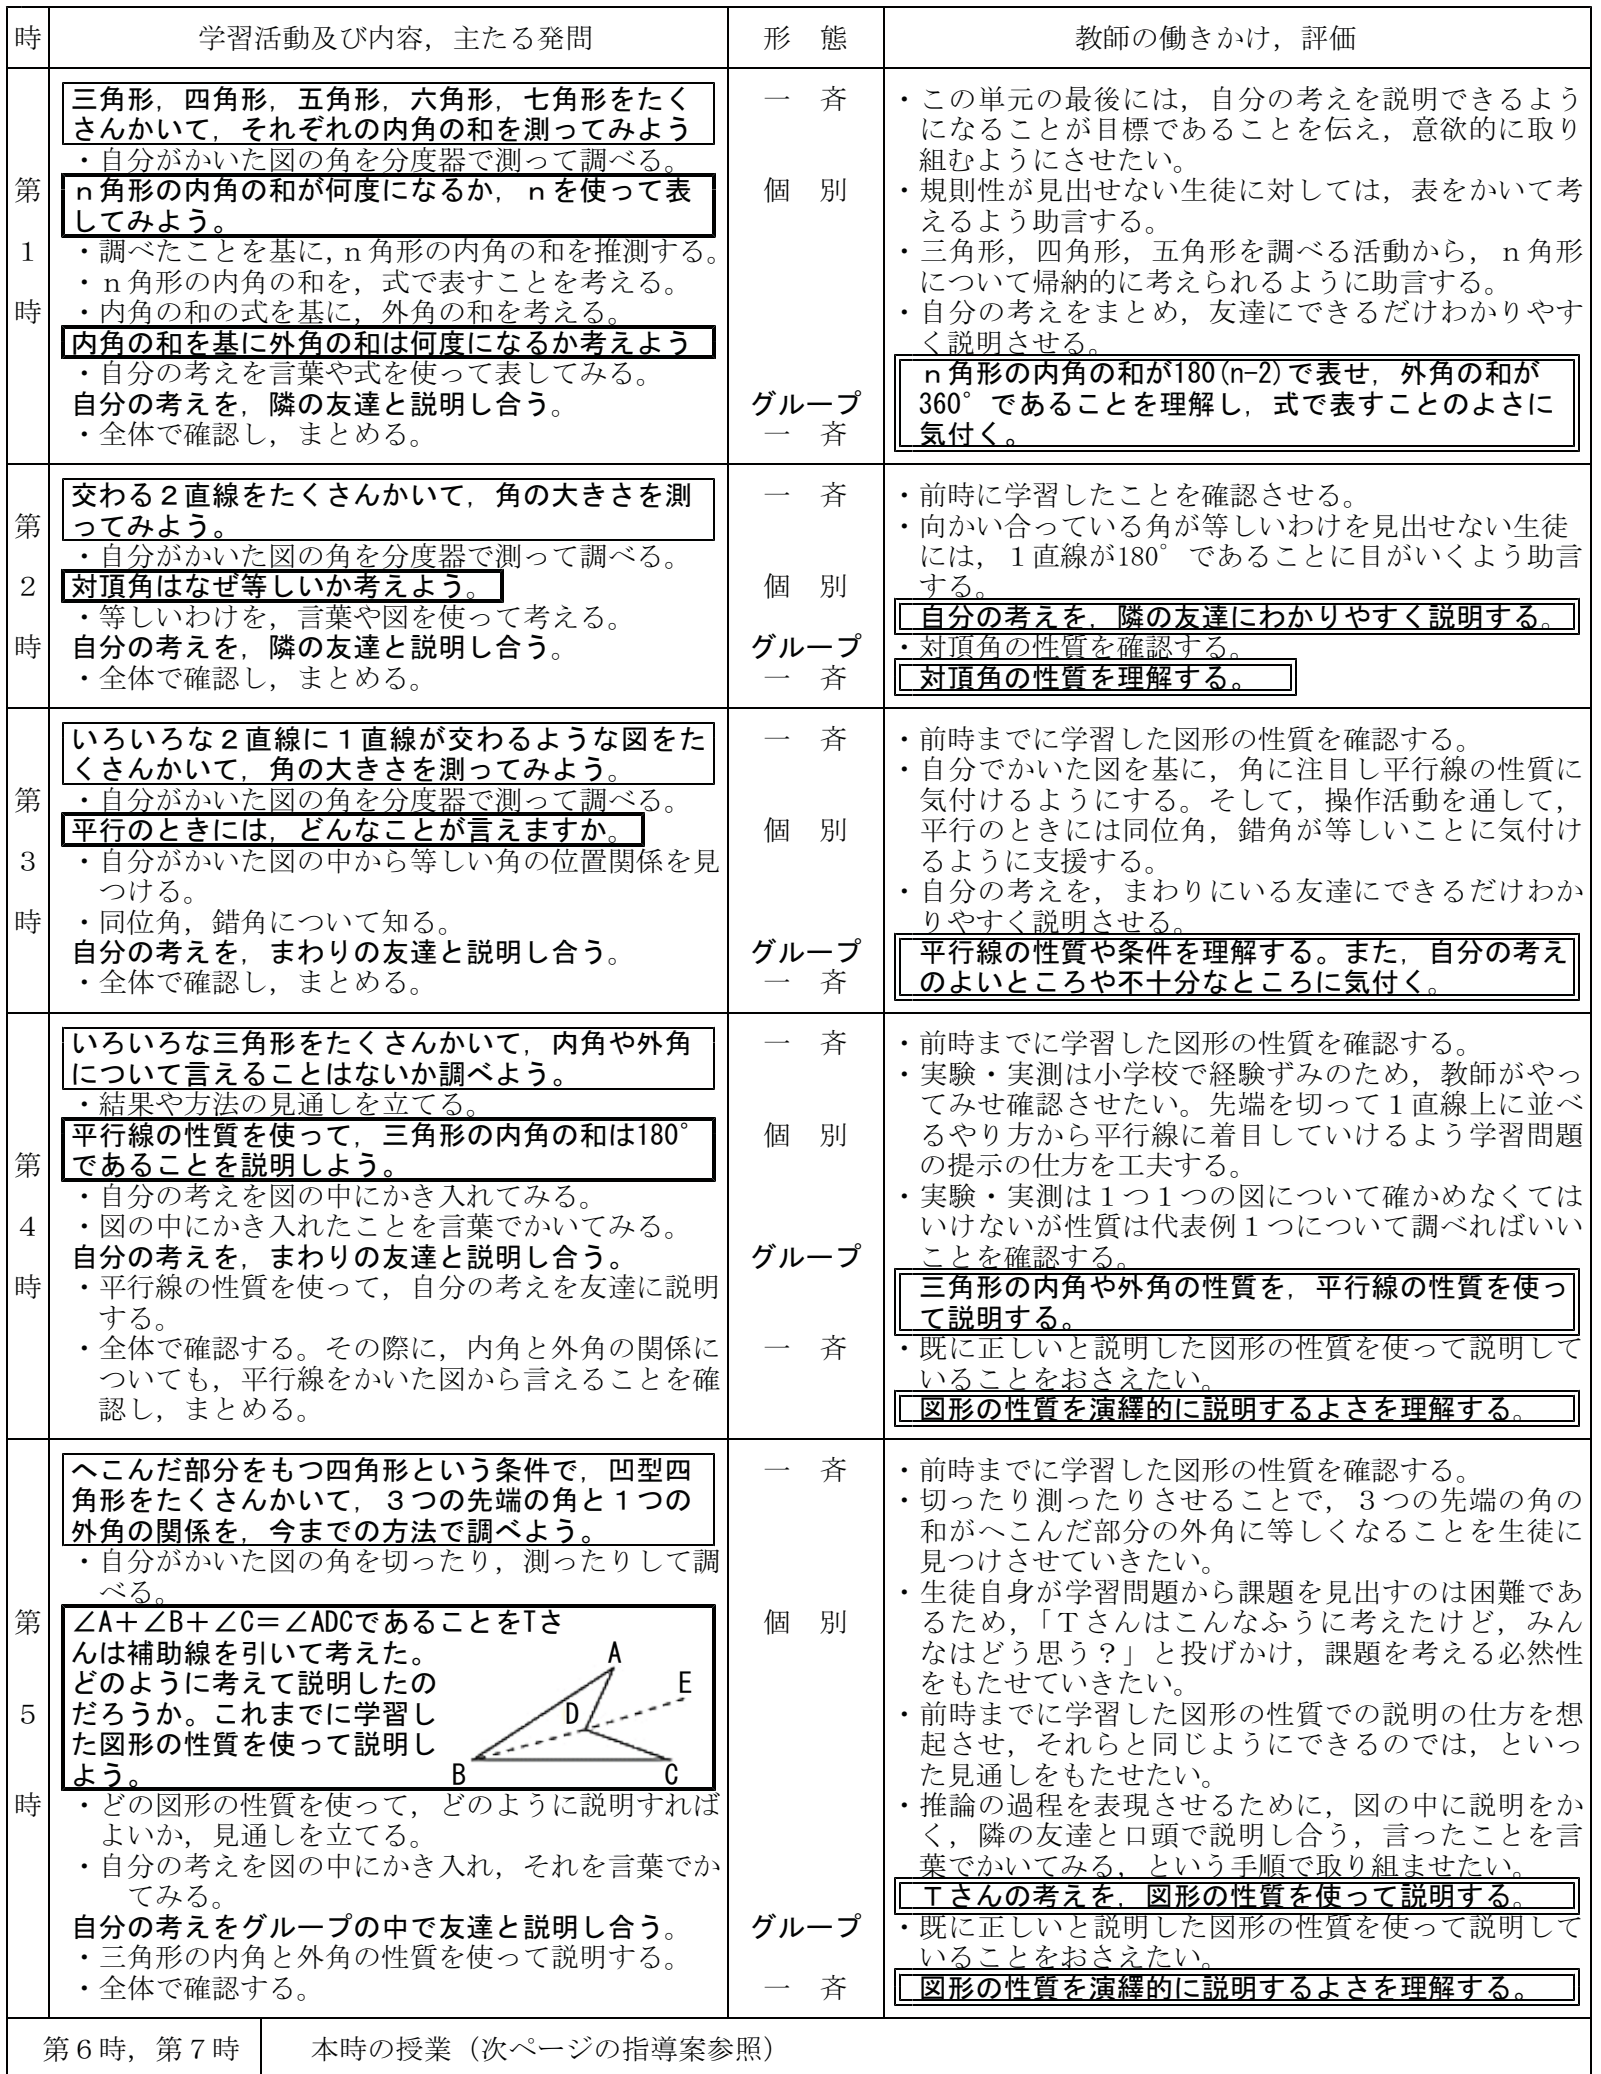 時
学習活動及び内容，主たる発問
形　態
教師の働きかけ，評価
第
1
時
三角形，四角形，五角形，六角形，七角形をたく
さんかいて，それぞれの内角の和を測ってみよう
・自分がかいた図の角を分度器で測って調べる。
ｎ角形の内角の和が何度になるか，ｎを使って表
してみよう。
・調べたことを基に，ｎ角形の内角の和を推測する。
・ｎ角形の内角の和を，式で表すことを考える。
・内角の和の式を基に，外角の和を考える。
内角の和を基に外角の和は何度になるか考えよう
・自分の考えを言葉や式を使って表してみる。
自分の考えを，隣の友達と説明し合う。
・全体で確認し，まとめる。
一　斉
個　別
グループ
一　斉
・この単元の最後には，自分の考えを説明できるよう
になることが目標であることを伝え，意欲的に取り
組むようにさせたい。
・規則性が見出せない生徒に対しては，表をかいて考
えるよう助言する。
・三角形，四角形，五角形を調べる活動から，ｎ角形
について帰納的に考えられるように助言する。
・自分の考えをまとめ，友達にできるだけわかりやす
く説明させる。
ｎ角形の内角の和が180(n-2)で表せ，外角の和が
360°であることを理解し，式で表すことのよさに
気付く。
第
2
時
交わる２直線をたくさんかいて，角の大きさを測
ってみよう。
・自分がかいた図の角を分度器で測って調べる。
対頂角はなぜ等しいか考えよう。
・等しいわけを，言葉や図を使って考える。
自分の考えを，隣の友達と説明し合う。
・全体で確認し，まとめる。
一　斉
個　別
グループ
一　斉
・前時に学習したことを確認させる。
・向かい合っている角が等しいわけを見出せない生徒
には，１直線が180°であることに目がいくよう助言
する。
自分の考えを，隣の友達にわかりやすく説明する。
・対頂角の性質を確認する。
対頂角の性質を理解する。
第
3
時
いろいろな２直線に１直線が交わるような図をた
くさんかいて，角の大きさを測ってみよう。
・自分がかいた図の角を分度器で測って調べる。
平行のときには，どんなことが言えますか。
・自分がかいた図の中から等しい角の位置関係を見
つける。
・同位角，錯角について知る。
自分の考えを，まわりの友達と説明し合う。
・全体で確認し，まとめる。
一　斉
個　別
グループ
一　斉
・前時までに学習した図形の性質を確認する。
・自分でかいた図を基に，角に注目し平行線の性質に
気付けるようにする。そして，操作活動を通して，
平行のときには同位角，錯角が等しいことに気付け
るように支援する。
・自分の考えを，まわりにいる友達にできるだけわか
りやすく説明させる。
平行線の性質や条件を理解する。また，自分の考え
のよいところや不十分なところに気付く。
第
4
時
いろいろな三角形をたくさんかいて，内角や外角
について言えることはないか調べよう。
・結果や方法の見通しを立てる。
平行線の性質を使って，三角形の内角の和は180°
であることを説明しよう。
・自分の考えを図の中にかき入れてみる。
・図の中にかき入れたことを言葉でかいてみる。
自分の考えを，まわりの友達と説明し合う。
・平行線の性質を使って，自分の考えを友達に説明
する。
・全体で確認する。その際に，内角と外角の関係に
ついても，平行線をかいた図から言えることを確
認し，まとめる。
一　斉
個　別
グループ
一　斉
・前時までに学習した図形の性質を確認する。
・実験・実測は小学校で経験ずみのため，教師がやっ
てみせ確認させたい。先端を切って１直線上に並べ
るやり方から平行線に着目していけるよう学習問題
の提示の仕方を工夫する。
・実験・実測は１つ１つの図について確かめなくては
いけないが性質は代表例１つについて調べればいい
ことを確認する。
三角形の内角や外角の性質を，平行線の性質を使っ
て説明する。
・既に正しいと説明した図形の性質を使って説明して
いることをおさえたい。
図形の性質を演繹的に説明するよさを理解する。
第
5
時
へこんだ部分をもつ四角形という条件で，凹型四
角形をたくさんかいて，３つの先端の角と１つの
外角の関係を，今までの方法で調べよう。
・自分がかいた図の角を切ったり，測ったりして調
べる。
∠A＋∠B＋∠C＝∠ADCであることをTさ
んは補助線を引いて考えた。
どのように考えて説明したの
だろうか。これまでに学習し
た図形の性質を使って説明し
よう。
A
E
D
B
C
・どの図形の性質を使って，どのように説明すれば
よいか，見通しを立てる。
・自分の考えを図の中にかき入れ，それを言葉でか
てみる。
自分の考えをグループの中で友達と説明し合う。
・三角形の内角と外角の性質を使って説明する。
・全体で確認する。
一　斉
個　別
グループ
一　斉
・前時までに学習した図形の性質を確認する。
・切ったり測ったりさせることで，３つの先端の角の
和がへこんだ部分の外角に等しくなることを生徒に
見つけさせていきたい。
・生徒自身が学習問題から課題を見出すのは困難であ
るため，「Ｔさんはこんなふうに考えたけど，みん
なはどう思う？」と投げかけ，課題を考える必然性
をもたせていきたい。
・前時までに学習した図形の性質での説明の仕方を想
起させ，それらと同じようにできるのでは，といっ
た見通しをもたせたい。
・推論の過程を表現させるために，図の中に説明をか
く，隣の友達と口頭で説明し合う，言ったことを言
葉でかいてみる，という手順で取り組ませたい。
Ｔさんの考えを，図形の性質を使って説明する。
・既に正しいと説明した図形の性質を使って説明して
いることをおさえたい。
図形の性質を演繹的に説明するよさを理解する。
第６時，第７時
本時の授業（次ページの指導案参照）